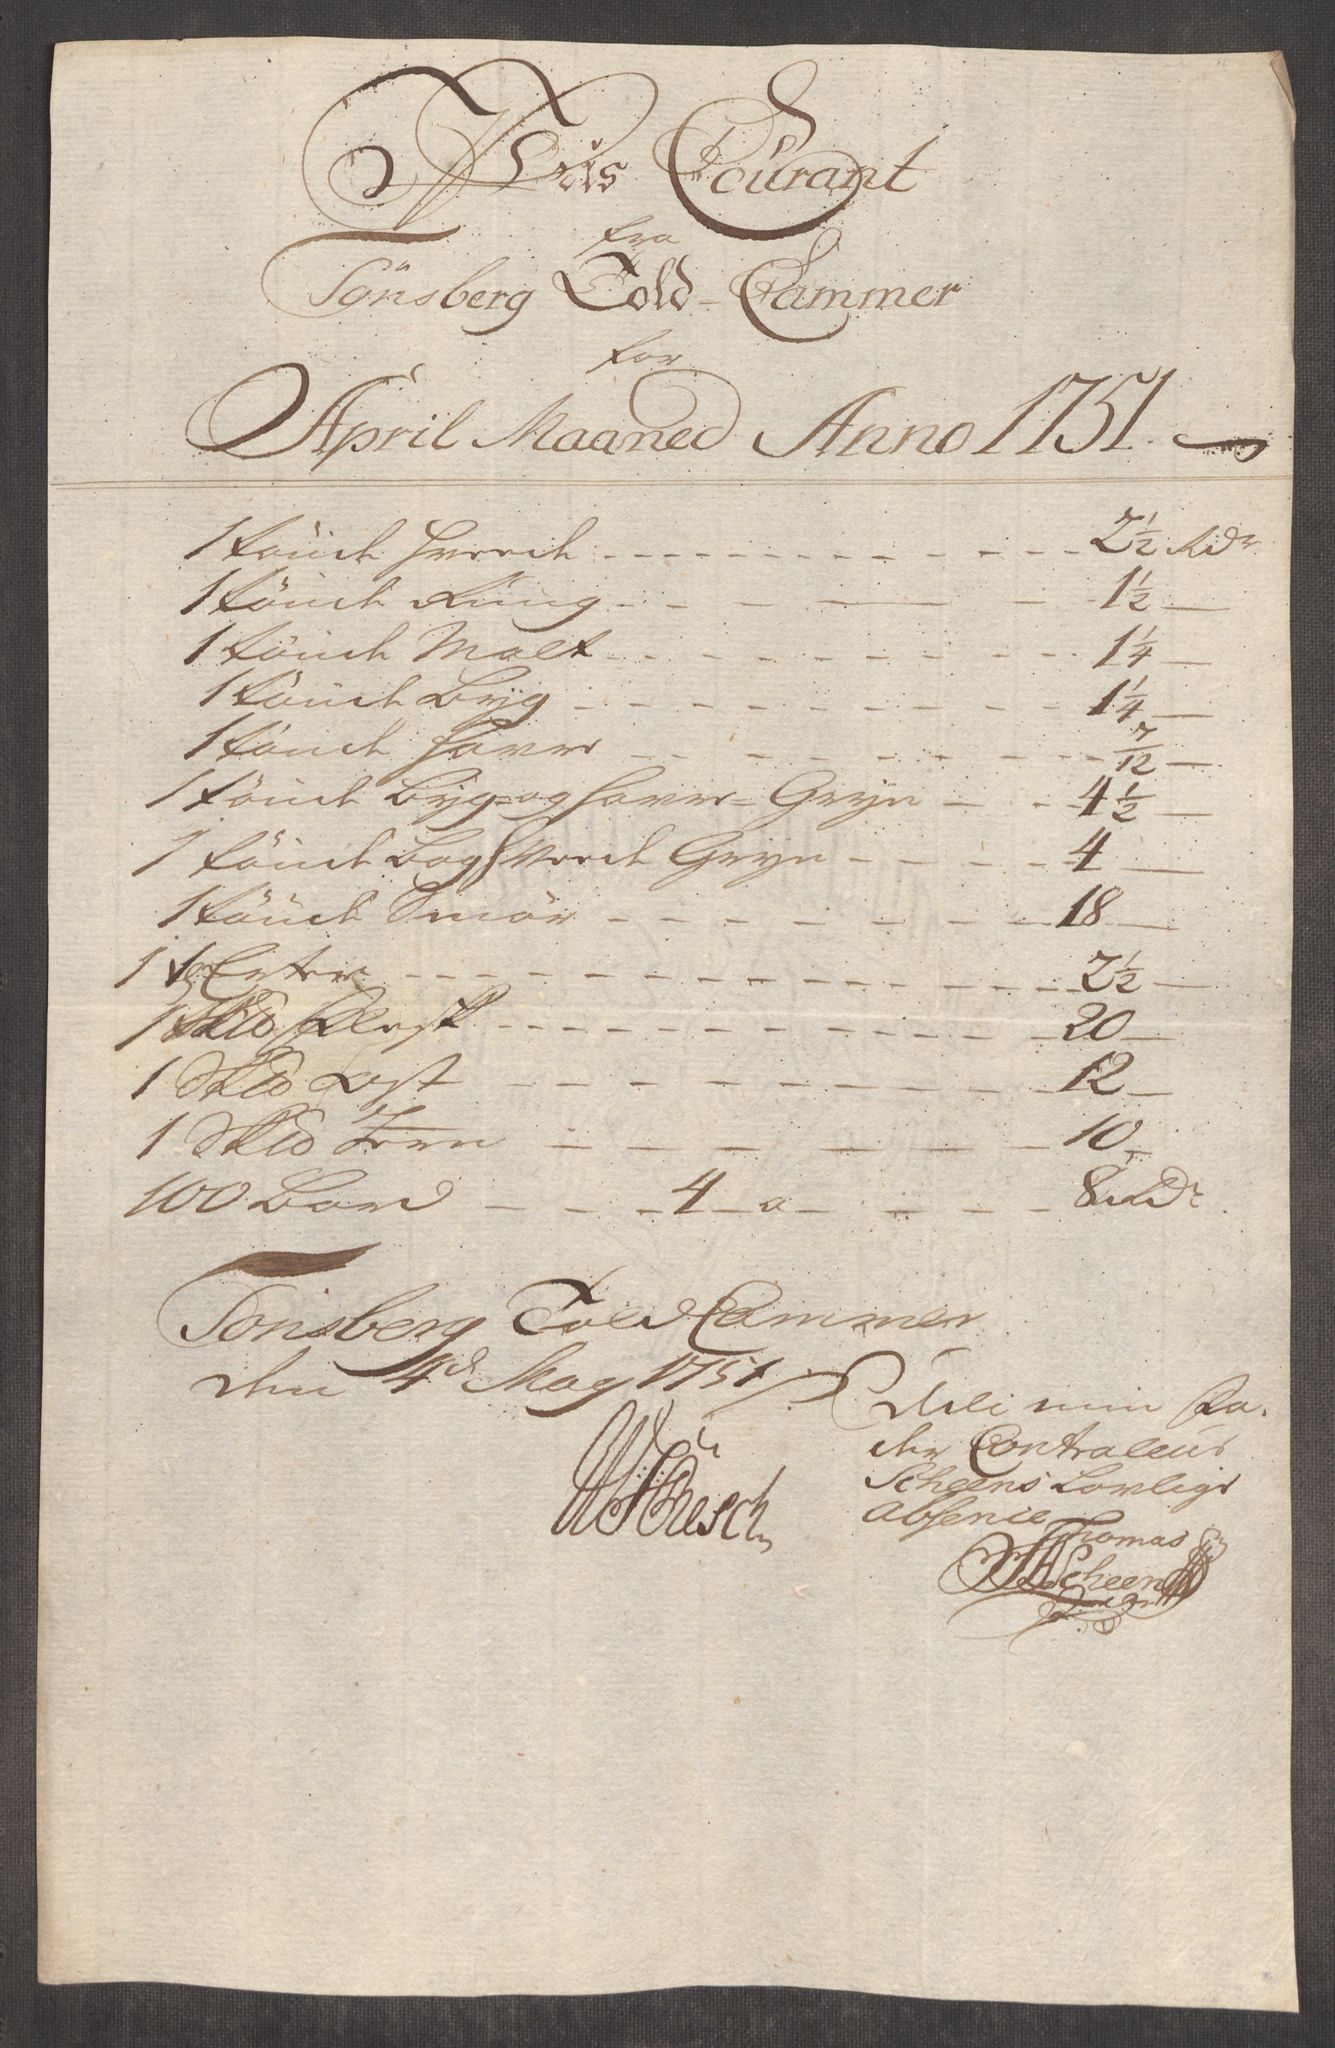 Priis Courant
fra
Tönsberg Told-Cammer
for
April Maaned Anno 1751.
1 tönde hvede 2 1/2 Rdr
1 tönde Rüug 1 1/2
1 tönde Malt 1 1/4
1 tönde Byg 1 1/4
1 tönde Haver 7/12
1 tönde Byg- og Haver-Gryn 4 1/2
1 tönde Boghvede Gryn 4
1 tönde Smör 18
1 tde Erter 2 1/2
1 Skld Flesk 20
1 Skld Ost 12
1 Skld Jern 10
100 Bord 4 a 8 Rdr
Tönsberg Told Cammer
den 4d May 1751
Udi min Fa-
der Controleur
Scheens Lovlige
absence
Thomas
Scheen